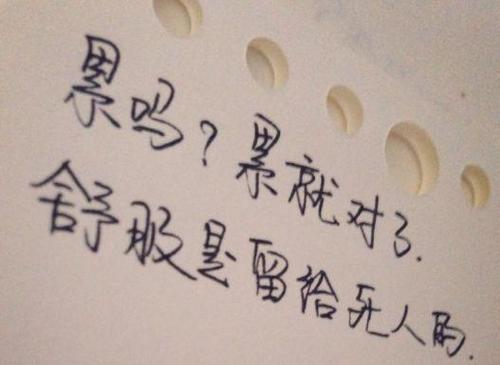 累吗？累就对了.
舒服是留给死人的.